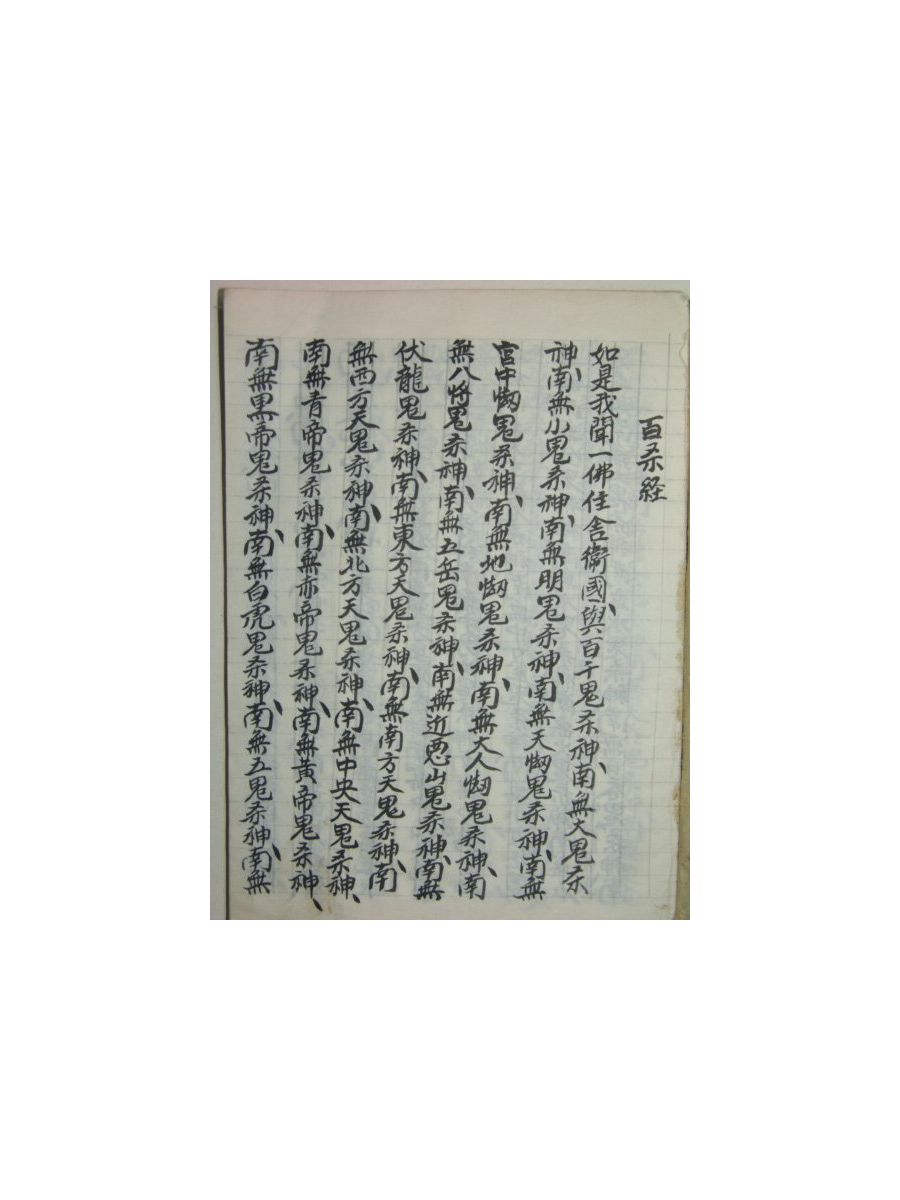 百杀経
如是我聞一佛住舎衛國、與百千鬼杀神、南無大鬼杀
神、南無小鬼杀神、南無明鬼杀神、南無天㘅鬼杀神、南無
宮中㘅鬼杀神、南無地㘅鬼杀神、南無大人㘅鬼杀神、南
無八将鬼杀神、南無五岳鬼杀神、南無近悪山鬼杀神、南無
伏龍鬼杀神、南無東方天鬼杀神、南無南方天鬼杀神、南
無西方天鬼杀神、南無北方天鬼杀神、南無中央天鬼杀神、
南無青帝鬼杀神、南無赤帝鬼杀神、南無黄帝鬼杀神、
南無黒帝鬼杀神、南無白虎鬼杀神、南無五鬼杀神、南無